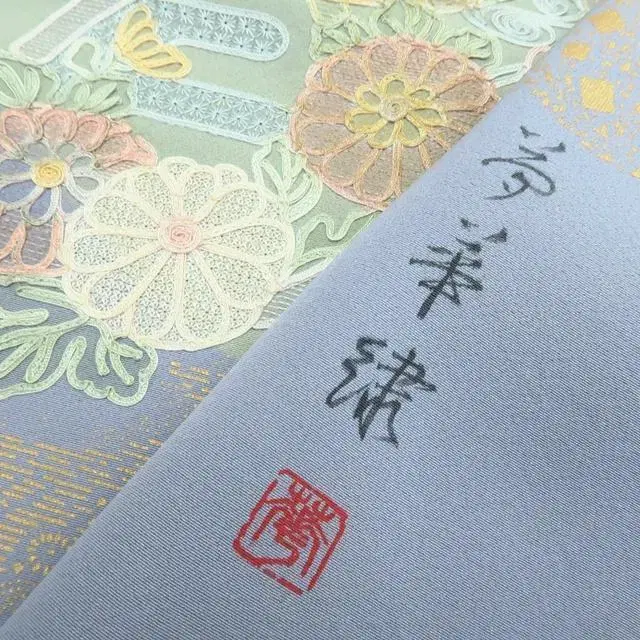 夢華繍